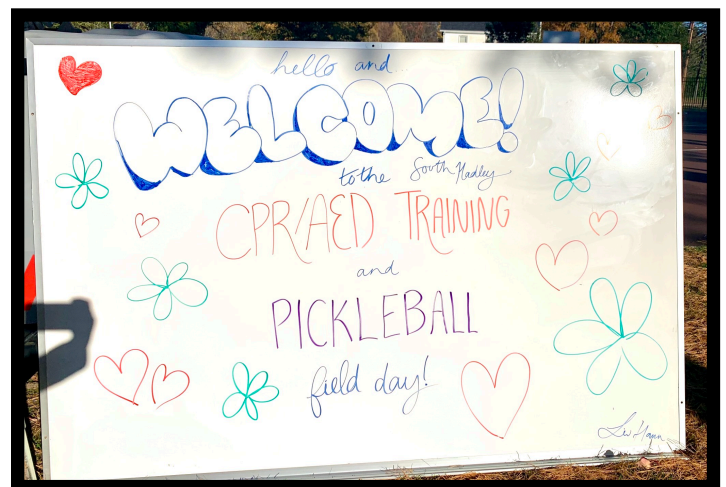 hello and
WELCOME!
to the South Hadley
CPR/AED TRAINING
and
PICKLEBALL
field day!